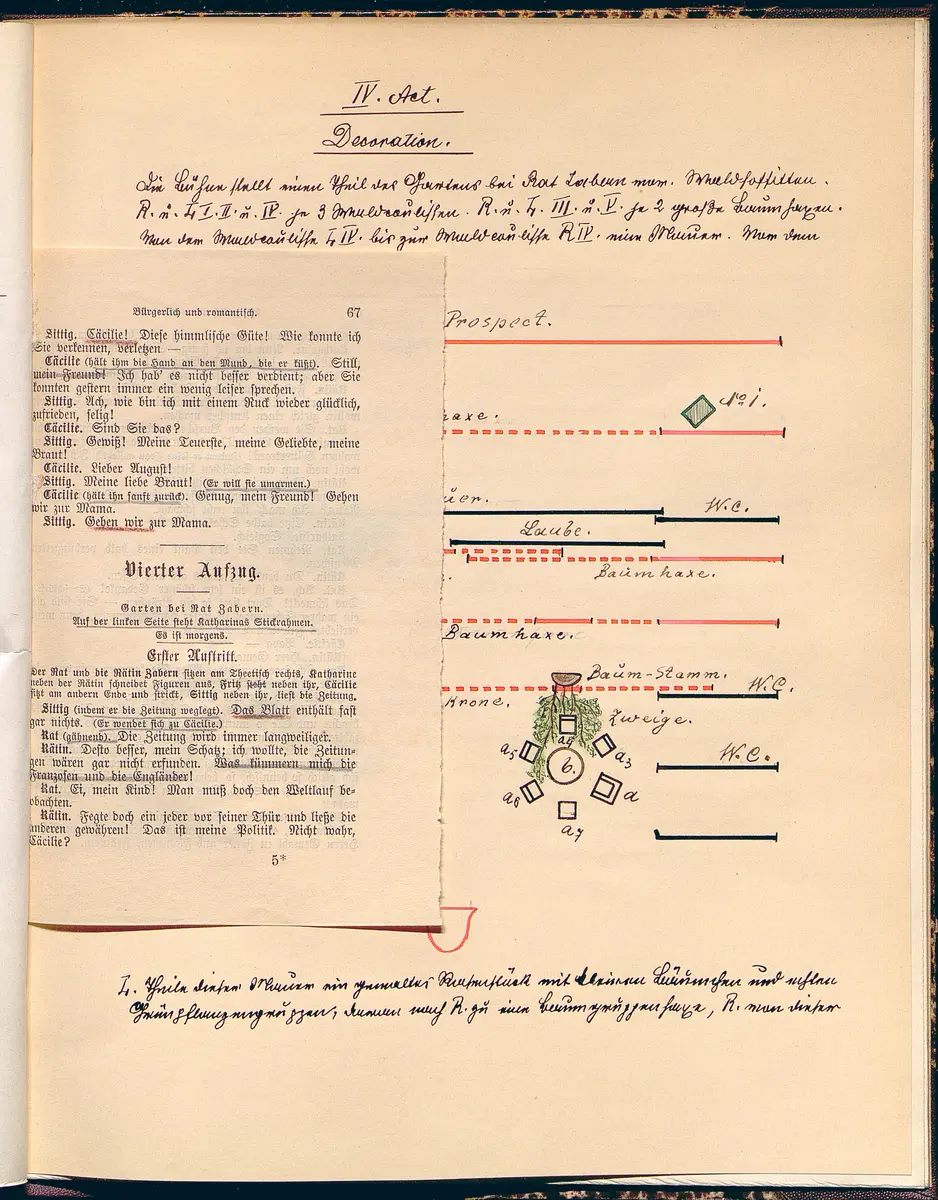 IV. Act.
Decoration.
Die Bühne stellt einen Theil des Gartens bei Rat Zabern vor. Waldsoffitten.
R. u. L. I. II. u. IV. je 3 Waldcoulissen. R. u. L. III. u. V. je 2 große Baumhaxen.
Von der Waldcoulisse L IV. bis zur Waldcoulisse R IV. eine Mauer. Vor dem
Bürgerlich und romantisch. 67
Sittig. Cäcilie! Diese himmlische Güte! Wie konnte ich
Sie verkennen, verletzen —
Cäcilie (hält ihm die Hand an den Mund, die er küßt). Still,
mein Freund! Ich hab' es nicht besser verdient; aber Sie
konnten gestern immer ein wenig leiser sprechen.
Sittig. Ach, wie bin ich mit einem Ruck wieder glücklich,
zufrieden, selig!
Cäcilie. Sind Sie das?
Sittig. Gewiß! Meine Teuerste, meine Geliebte, meine
Braut!
Cäcilie. Lieber August!
Sittig. Meine liebe Braut! (Er will sie umarmen.)
Cäcilie (hält ihn sanft zurück). Genug, mein Freund! Gehen
wir zur Mama.
Sittig. Gehen wir zur Mama.
Vierter Aufzug.
Garten bei Rat Zabern.
Auf der linken Seite steht Katharinas Stickrahmen.
Es ist morgens.
Erster Auftritt.
Der Rat und die Rätin Zabern sitzen am Theetisch rechts, Katharine
neben der Rätin schneidet Figuren aus, Fritz steht neben ihr, Cäcilie
sitzt am andern Ende und strickt, Sittig neben ihr, liest die Zeitung.
Sittig (indem er die Zeitung weglegt). Das Blatt enthält fast
gar nichts. (Er wendet sich zu Cäcilie.)
Rat (gähnend). Die Zeitung wird immer langweiliger.
Rätin. Desto besser, mein Schatz; ich wollte, die Zeitun-
gen wären gar nicht erfunden. Was kümmern mich die
Franzosen und die Engländer!
Rat. Ei, mein Kind! Man muß doch den Weltlauf be-
obachten.
Rätin. Fegte doch ein jeder vor seiner Thür und ließe die
anderen gewähren! Das ist meine Politik. Nicht wahr,
Cäcilie?
5*
Prospect.
haxe.
No 1.
uer.
W.C.
Laube.
Baumhaxe.
Baumhaxe.
Baum-Stamm.
W.C.
Krone.
Zweige.
a4
a5
a3
b.
W.C.
a6
a
a7
L. Theile dieser Mauer ein gemaltes Rasenstück mit kleinen Bäumchen und echten
Grünpflanzengruppen; daran nach R. zu eine Baumgruppenhaxe, R. von dieser